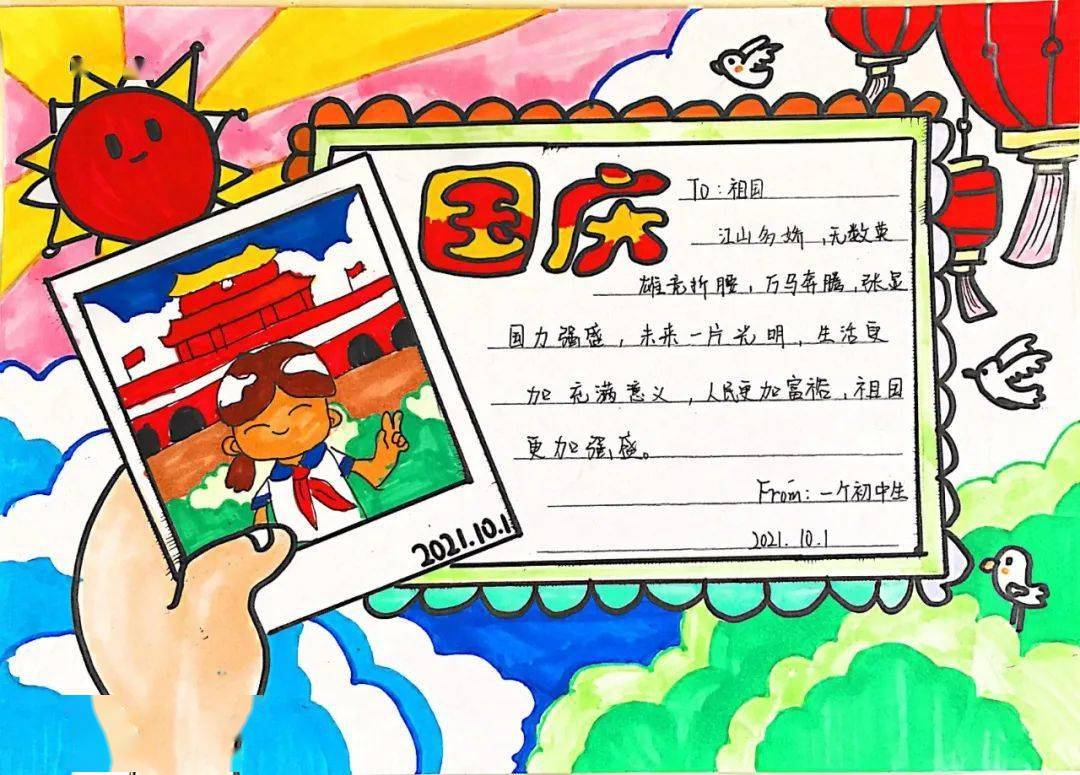 国庆
To：祖国
江山多娇，无数英
雄竞折腰，万马奔腾，张显
国力强盛，未来一片光明，生活更
加充满意义，人民更加富裕，祖国
更加强盛。
From：一个初中生
2021.10.1
2021.10.1